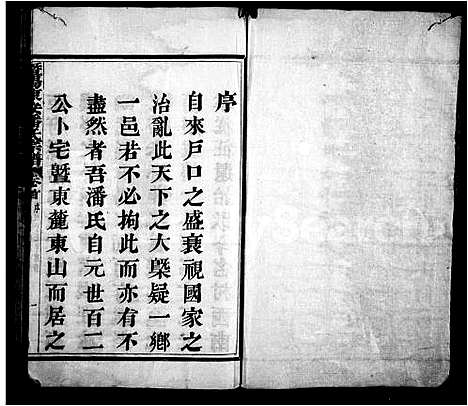 序
自來戶口之盛衰視國家之
治亂此天下之大槩疑一鄉
一邑若不必拘此而亦有不
盡然者吾潘氏自元世百二
公卜宅暨東麓東山而居之